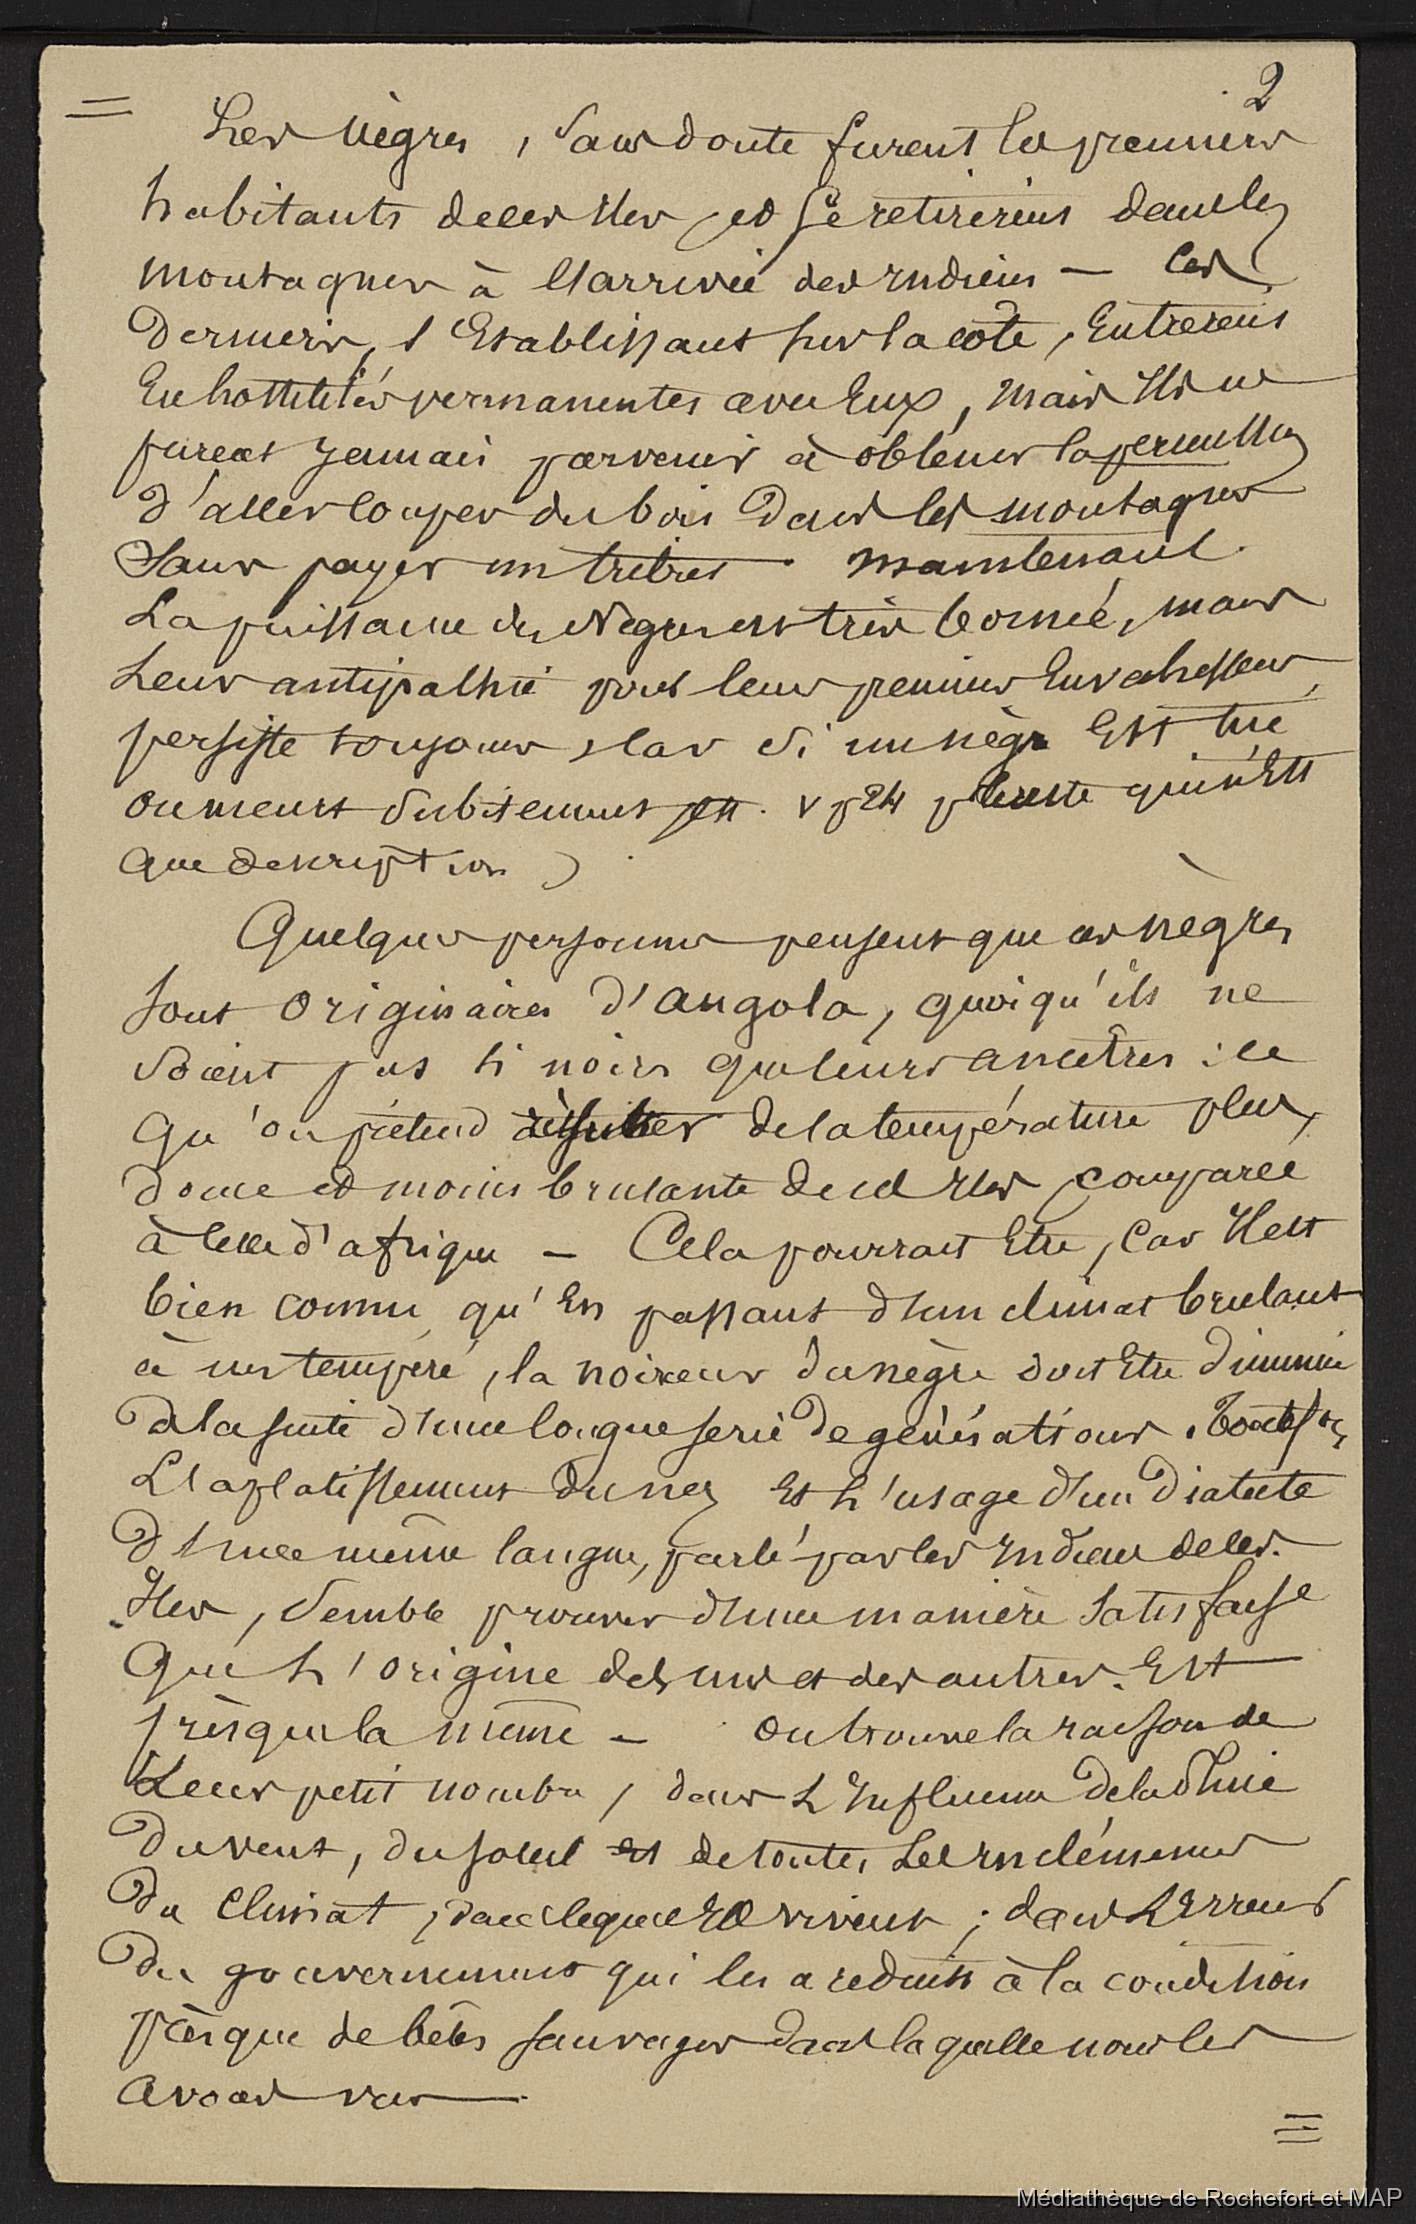 2
Les nègres, sans doute furent les premiers
habitants de ces Iles et se retirèrent dans les
montagnes à l'arrivée des Indiens — Ces
derniers, s'Etablissant sur la côte, Entrèrent
En hostilités permanentes avec Eux, mais Ils ne
purent jamais parvenir à obtenir la permission
d'aller couper du bois dans les montagnes
sans payer un tribut. maintenant
La puissance des Nègres est très bornée, mais
Leur antipathie pour leurs premiers Envahisseurs
persiste toujours, car si un nègre Est tué
ou meurt subitement v p 24 qui n'Est
que description )
Quelques personnes pensent que ces nègres
sont originaires d'Angola, quoiqu'ils ne
soient pas si noirs que leurs ancêtres : ce
qu'on prétend résulter de la température plus
douce et moins brulante de ces Iles, comparée
à celle d'afrique — Cela pourrait Etre, Car Il est
bien connu, qu'En passant d'un climat brulant
à un tempéré, la noirceur du nègre doit Etre diminuée
à la suite d'une longue serie de générations.
L'aplatissement du nez Et L'usage d'un dialecte
d'une même langue, parlé par les Indiens de ces
Iles, semble prouver d'une manière satisfaiste
Que L'origine des uns et des autres Est
prèsque la même — On trouve la raison de
Leur petit nombre, dans L'Influence de la pluie
Du vent, du soleil et de toutes Les Inclémences
Du Climat, dans lequel Ils vivent ; dans L'Erreur
Du gouvernement qui les a reduits à la condition
prèsque de bêtes sauvages dans laquelle nous les
avons vus
Médiathèque de Rochefort et MAP